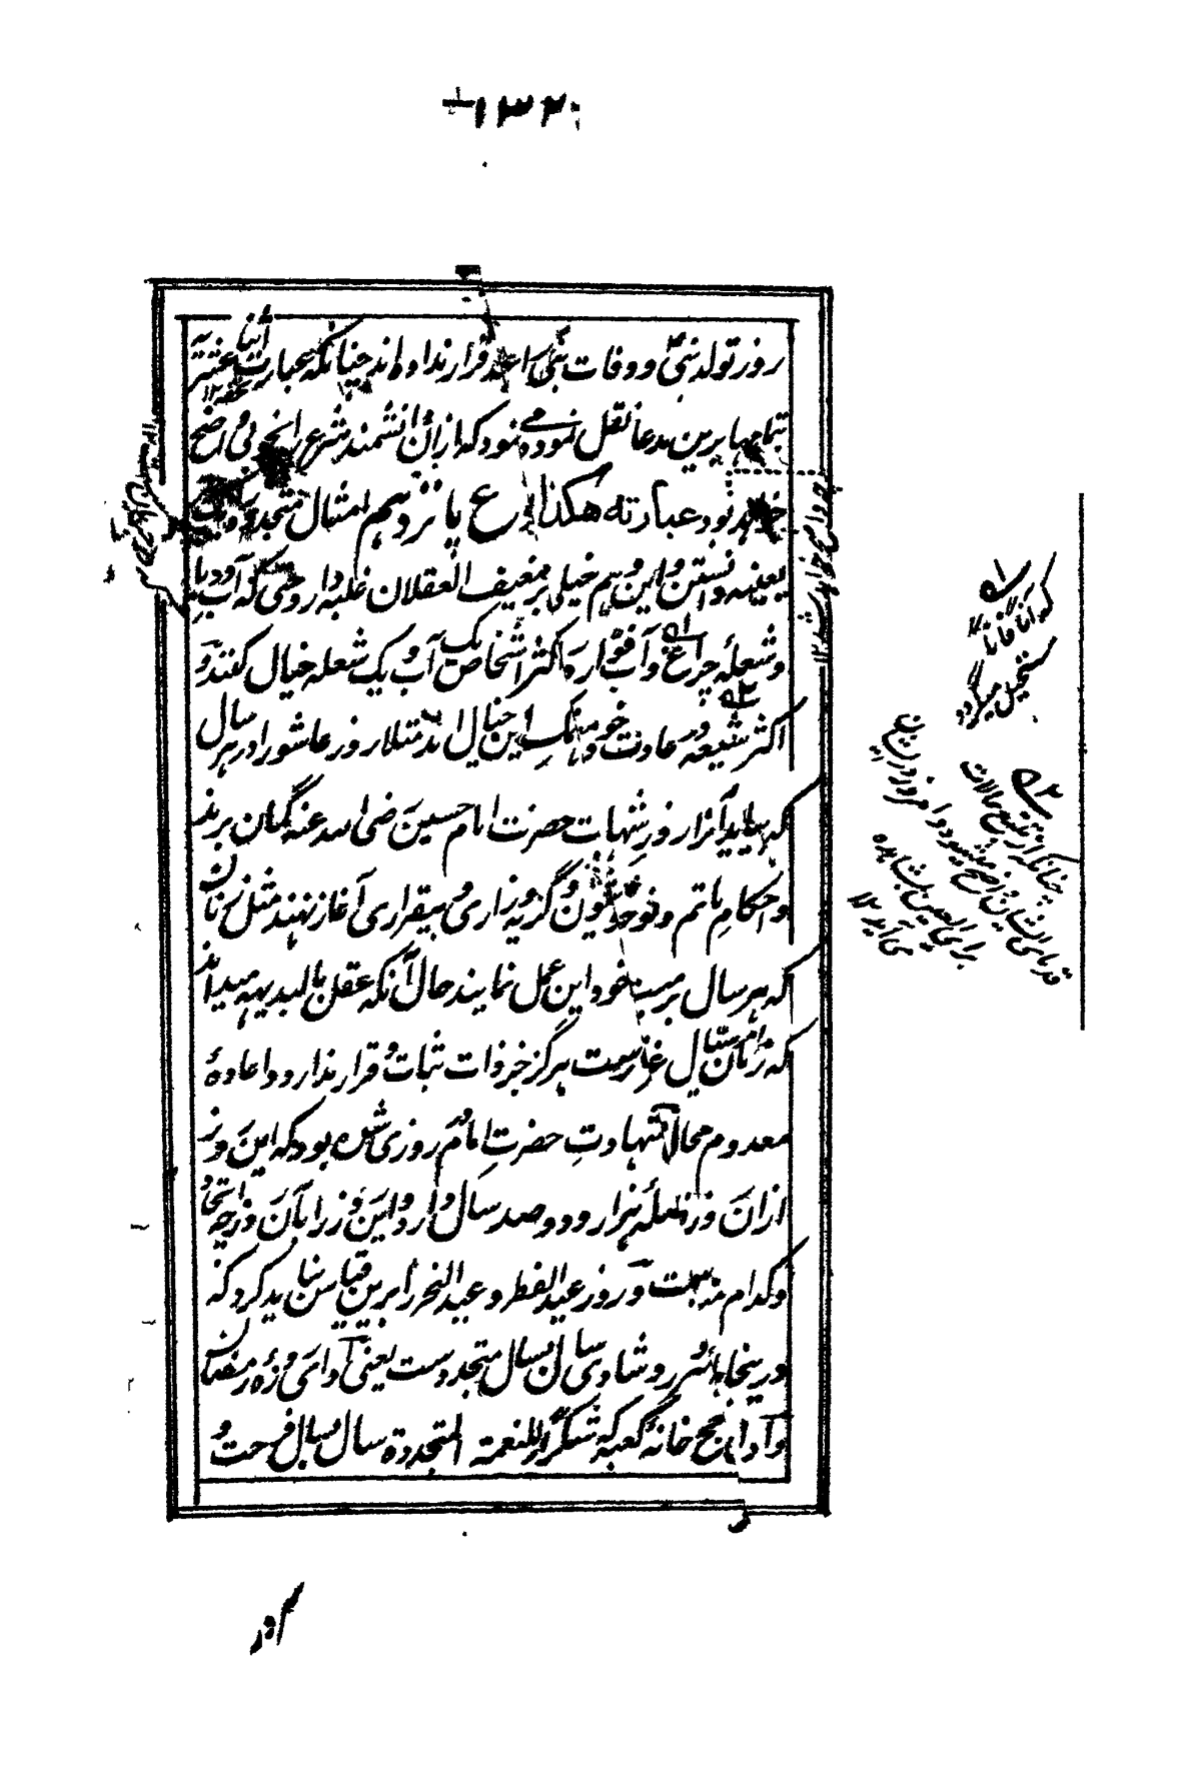 ۱۳۲
روز تولد نبی و وفات نبی را عید قرار نداده اند چنانکه عبارت اثنا عشریه
بتمامها برین مدعا نقل نموده می نمود که ازان دانشمند شرعی واضح
خواهد نمود عبارته هکذا نوع پانزدهم امثال متجدده
بعینه دانستن و این وهم خیلی بر ضعیف العقلان غلبه دارد حتی که آب دریا
و شعلهٔ چراغ و آب فواره را اکثر اشخاص یک آب و یک شعله خیال کنند و
اکثر شیعه در عادت خود منهمک این خیال اند مثلا روز عاشورا در هر سال
که بیاید آنرا روز شهادت حضرت امام حسین رضی الله عنه گمان برند
و احکام ماتم و نوحه و شیون و گریه و زاری و بیقراری آغاز نهند مثل زنان
که هر سال بر میت خود این عمل نمایند حال آنکه عقل بالبدیهه میداند
که زمان امر سیال غیر قار ست هرگز جزو ذات ثبات و قرار ندارد و اعادهٔ
معدوم محال و شهادت حضرت امام در روزی شده بود که این روز
ازان روز فاصلهٔ هزار و دو صد سال دارد و این روز را بآن روز چه اتحاد
و کدام مناسبت و روز عید الفطر و عید النحر را برین قیاس نباید کرد که
در ینجا مایهٔ سرور و شادی سال بسال متجدد ست یعنی ادای روزهٔ رمضان
و ادای حج خانهٔ کعبه که شکرا للنعمة المتجددة سال بسال فرحت و
که آناً فاناً
مستحیل میگردد
چنانکه از تتبع حالات